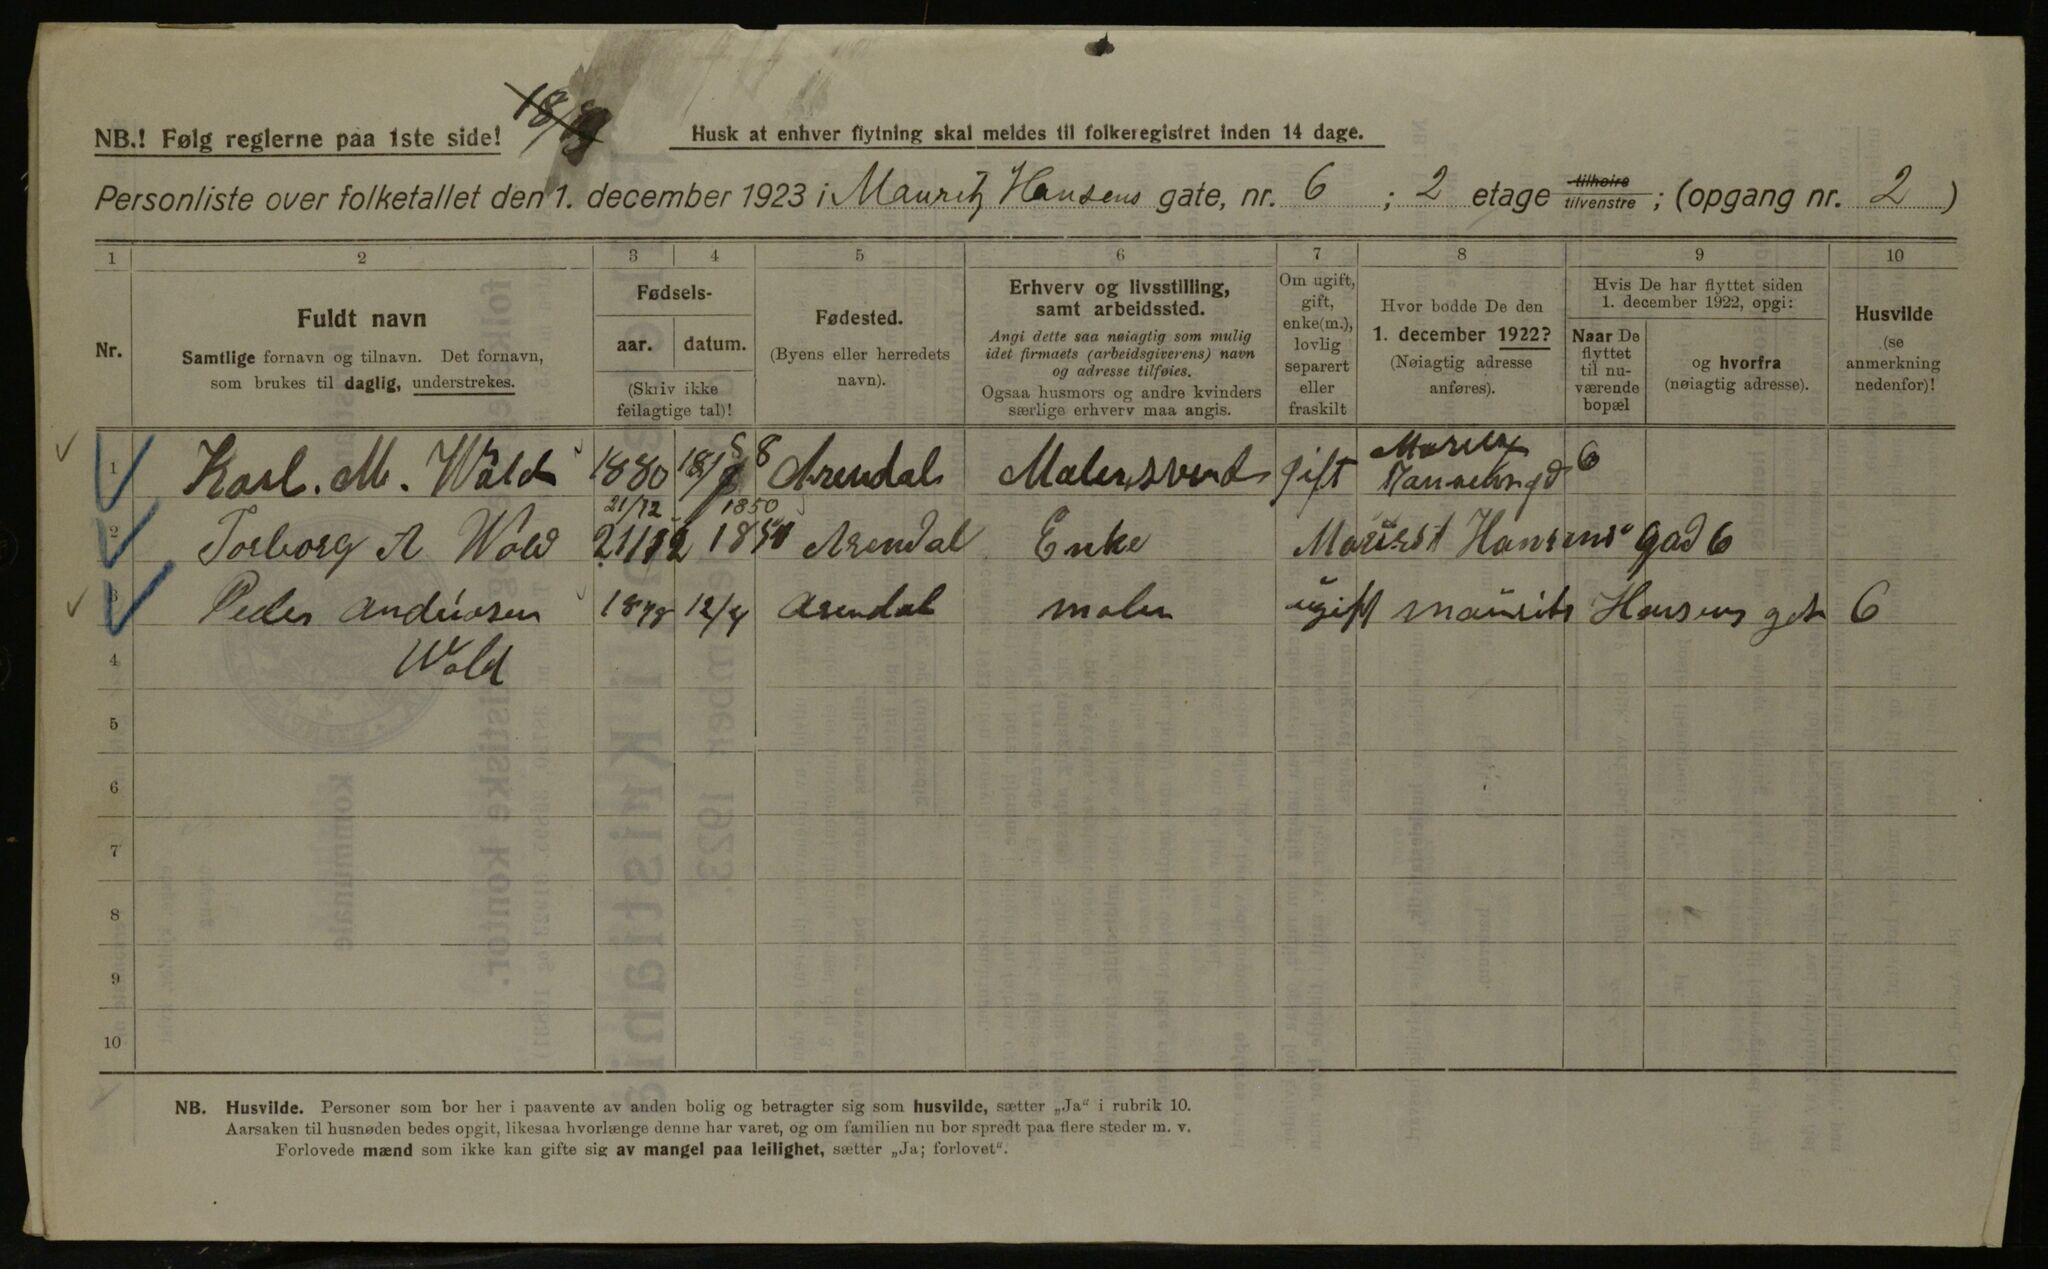 18/8
NB.! Følg reglerne paa 1ste side!
Husk at enhver flytning skal meldes til folkeregistret inden 14 dage.
Personliste over folketallet den 1. december 1923 i Mauritz Hansens gate, nr. 6 ; 2 etage tilhøire tilvenstre ; (opgang nr. 2 )
1 2 3 4 5 6 7 8 9 10
Nr.
Fuldt navn
Samtlige fornavn og tilnavn. Det fornavn,
som brukes til daglig, understrekes.
Fødsels-
aar. datum.
(Skriv ikke
feilagtige tal)!
Fødested.
(Byens eller herredets
navn).
Erhverv og livsstilling,
samt arbeidssted.
Angi dette saa nøiagtig som mulig
idet firmaets (arbeidsgiverens) navn
og adresse tilføies.
Ogsaa husmors og andre kvinders
særlige erhverv maa angis.
Om ugift,
gift,
enke(m.),
lovlig
separert
eller
fraskilt
Hvor bodde De den
1. december 1922?
(Nøiagtig adresse
anføres).
Hvis De har flyttet siden
1. december 1922, opgi:
Naar De
flyttet
til nu-
værende
bopæl
og hvorfra
(nøiagtig adresse).
Husvilde
(se
anmerkning
nedenfor)!
1 Karl. M. Wold 1880 18/8 Arendal Malersvend gift Moritz Hansensgd 6
21/12 1850
2 Torborg A Wold 21/12 1850 Arendal Enke Mauritst Hansens gad 6
3 Peder Andreasen 1878 12/4 Arendal maler ugift Maurits Hansens gt 6
4 Wold
5
6
7
8
9
10
NB. Husvilde. Personer som bor her i paavente av anden bolig og betragter sig som husvilde, sætter „Ja“ i rubrik 10.
Aarsaken til husnøden bedes opgit, likesaa hvorlænge denne har varet, og om familien nu bor spredt paa flere steder m. v.
Forlovede mænd som ikke kan gifte sig av mangel paa leilighet, sætter „Ja; forlovet“.